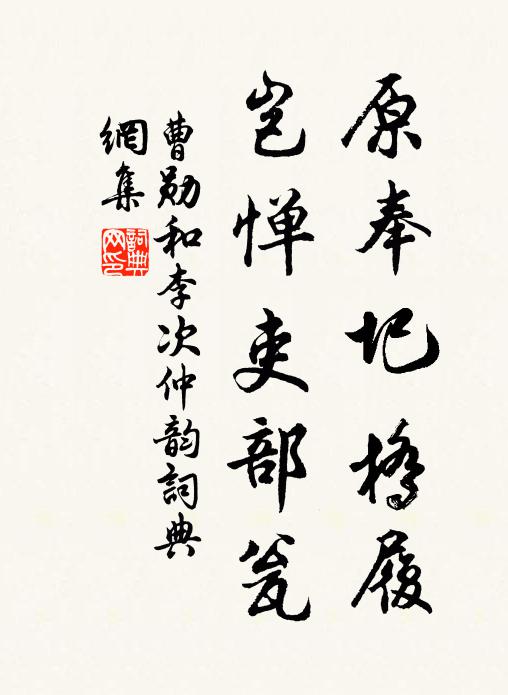 原奉圯橋履
岂惮吏部瓮
曹勋和李次仲韵詞典
網集
詞典
网印